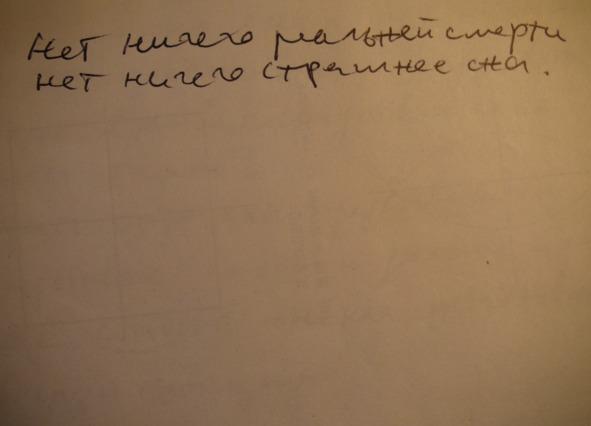 Нет ничего реальней смерти
нет ничего страшнее сна.